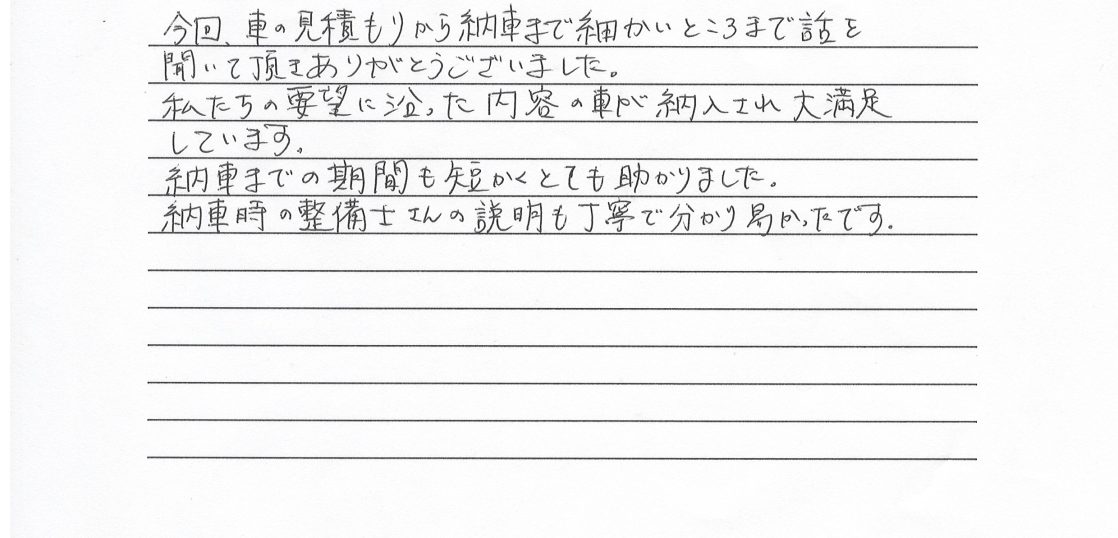 今回、車の見積もりから納車まで細かいところまで話を
聞いて頂きありがとうございました。
私たちの要望に沿った内容の車が納入され大満足
しています。
納車までの期間も短かくとても助かりました。
納車時の整備士さんの説明も丁寧で分かり易かったです。